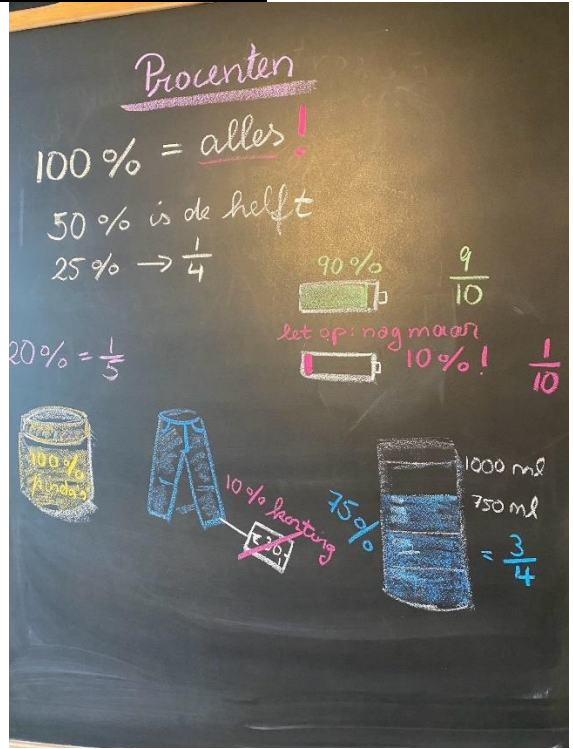 Procenten
100% = alles!
50% is de helft
25% → 1/4
90%
9/10
let op: nog maar
10%!
1/10
20% = 1/5
100%
10% korting
75%
1000 ml
750 ml
= 3/4